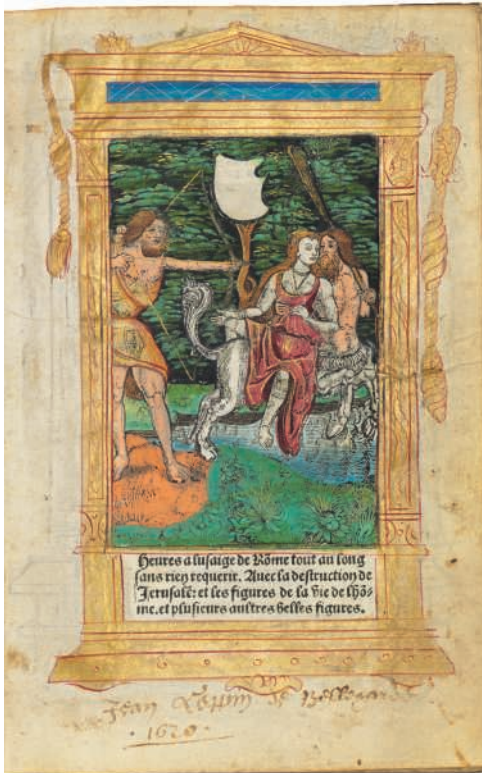 Heures a lusaige de Rõme tout au long
sans riẽ requerir. Auec la destruction de
Jerusalẽ: et les figures de la vie de lhõ-
me. et plusieurs aultres belles figures.
Jean de Bellegarde
1620